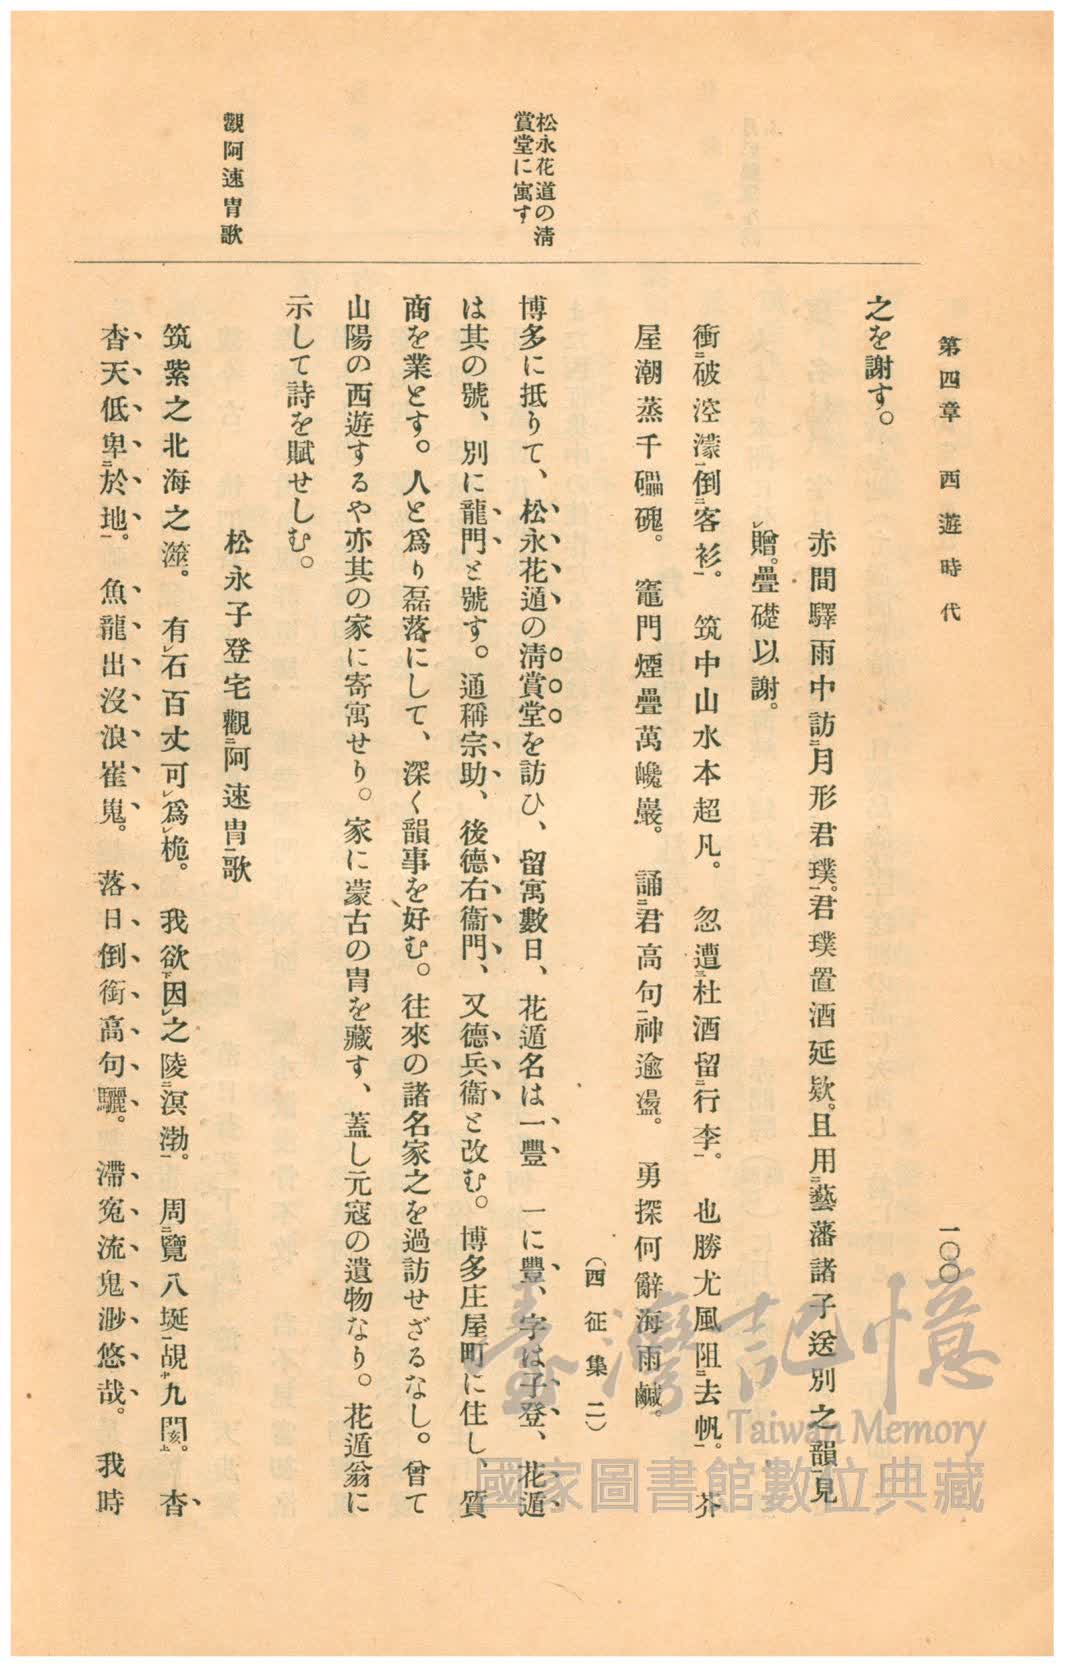 第四章 西遊時代
一〇〇
之を謝す。
赤間驛雨中訪月形君璞。君璞置酒延欵。且用藝藩諸子送別之韻見
贈。疊礎以謝。
衝破涳濛倒客衫。 筑中山水本超凡。 忽遭杜酒留行李。 也勝尤風阻去帆。 芥
屋潮蒸千礧磈。 竈門煙疊萬巉巖。 誦君高句神逾盪。 勇探何辭海雨鹹。
（西征集 二）
松永花遁の淸
賞堂に寓す
博多に抵りて、松永花遁の淸賞堂を訪ひ、留寓數日、花遁名は一豐 一に豐、字は子登、花遁
は其の號、別に龍門と號す。通稱宗助、後德右衞門、又德兵衞と改む。博多庄屋町に住し、質
商を業とす。人と爲り磊落にして、深く韻事を好む。往來の諸名家之を過訪せざるなし。曾て
山陽の西遊するや亦其の家に寄寓せり。家に蒙古の冑を藏す、蓋し元寇の遺物なり。花遁翁に
示して詩を賦せしむ。
觀阿速冑歌
松永子登宅觀阿速冑歌
筑紫之北海之澨。 有石百丈可爲桅。 我欲因之陵溟渤。 周覽八埏覘九閡。 杳
杳天低卑於地。 魚龍出沒浪崔嵬。 落日倒銜高句驪。 滯寃流鬼渺悠哉。 我時
臺灣記憶
Taiwan Memory
國家圖書館數位典藏